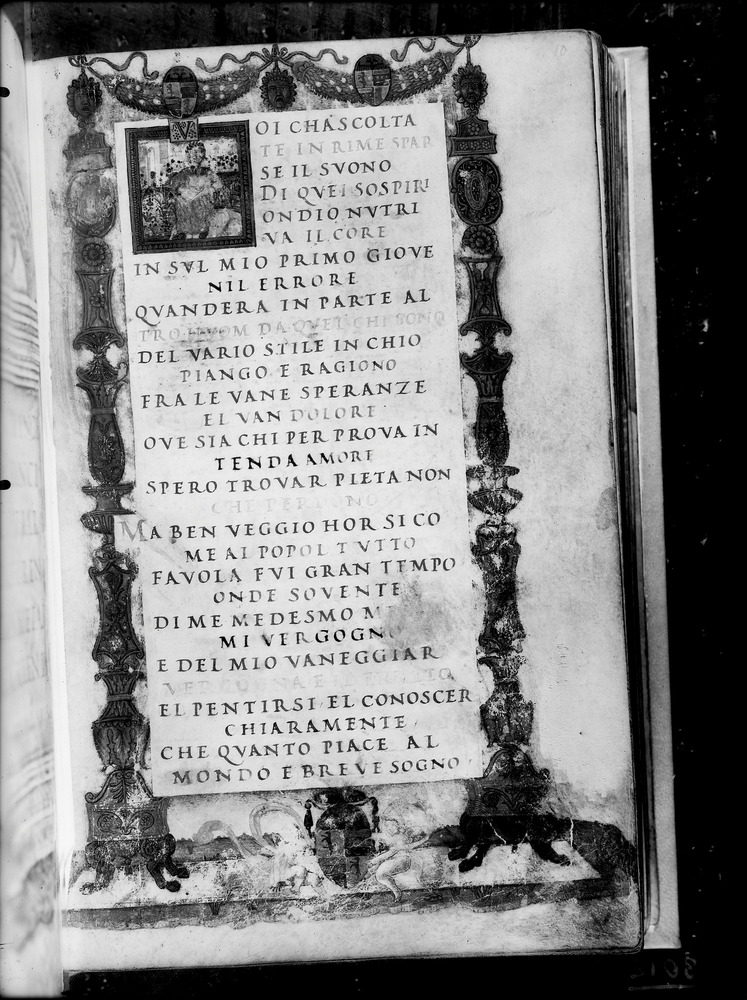 VOI CHASCOLTA
TE IN RIME SPAR
SE IL SVONO
DI QVEI SOSPIRI
ONDIO NVTRI
VA IL CORE
IN SVL MIO PRIMO GIOVE
NIL ERRORE
QVANDERA IN PARTE AL
TRO HVOM DA QVEL CHI SONO
DEL VARIO STILE IN CHIO
PIANGO E RAGIONO
FRA LE VANE SPERANZE
EL VAN DOLORE
OVE SIA CHI PER PROVA IN
TENDA AMORE
SPERO TROVAR PIETA NON
CHE PERDONO
MA BEN VEGGIO HOR SI CO
ME AL POPOL TVTTO
FAVOLA FVI GRAN TEMPO
ONDE SOVENTE
DI ME MEDESMO M
MI VERGOGN
E DEL MIO VANEGGIAR
VERGOGNA E IL FRVTTO
EL PENTIRSI EL CONOSCER
CHIARAMENTE
CHE QVANTO PIACE AL
MONDO E BREVE SOGNO